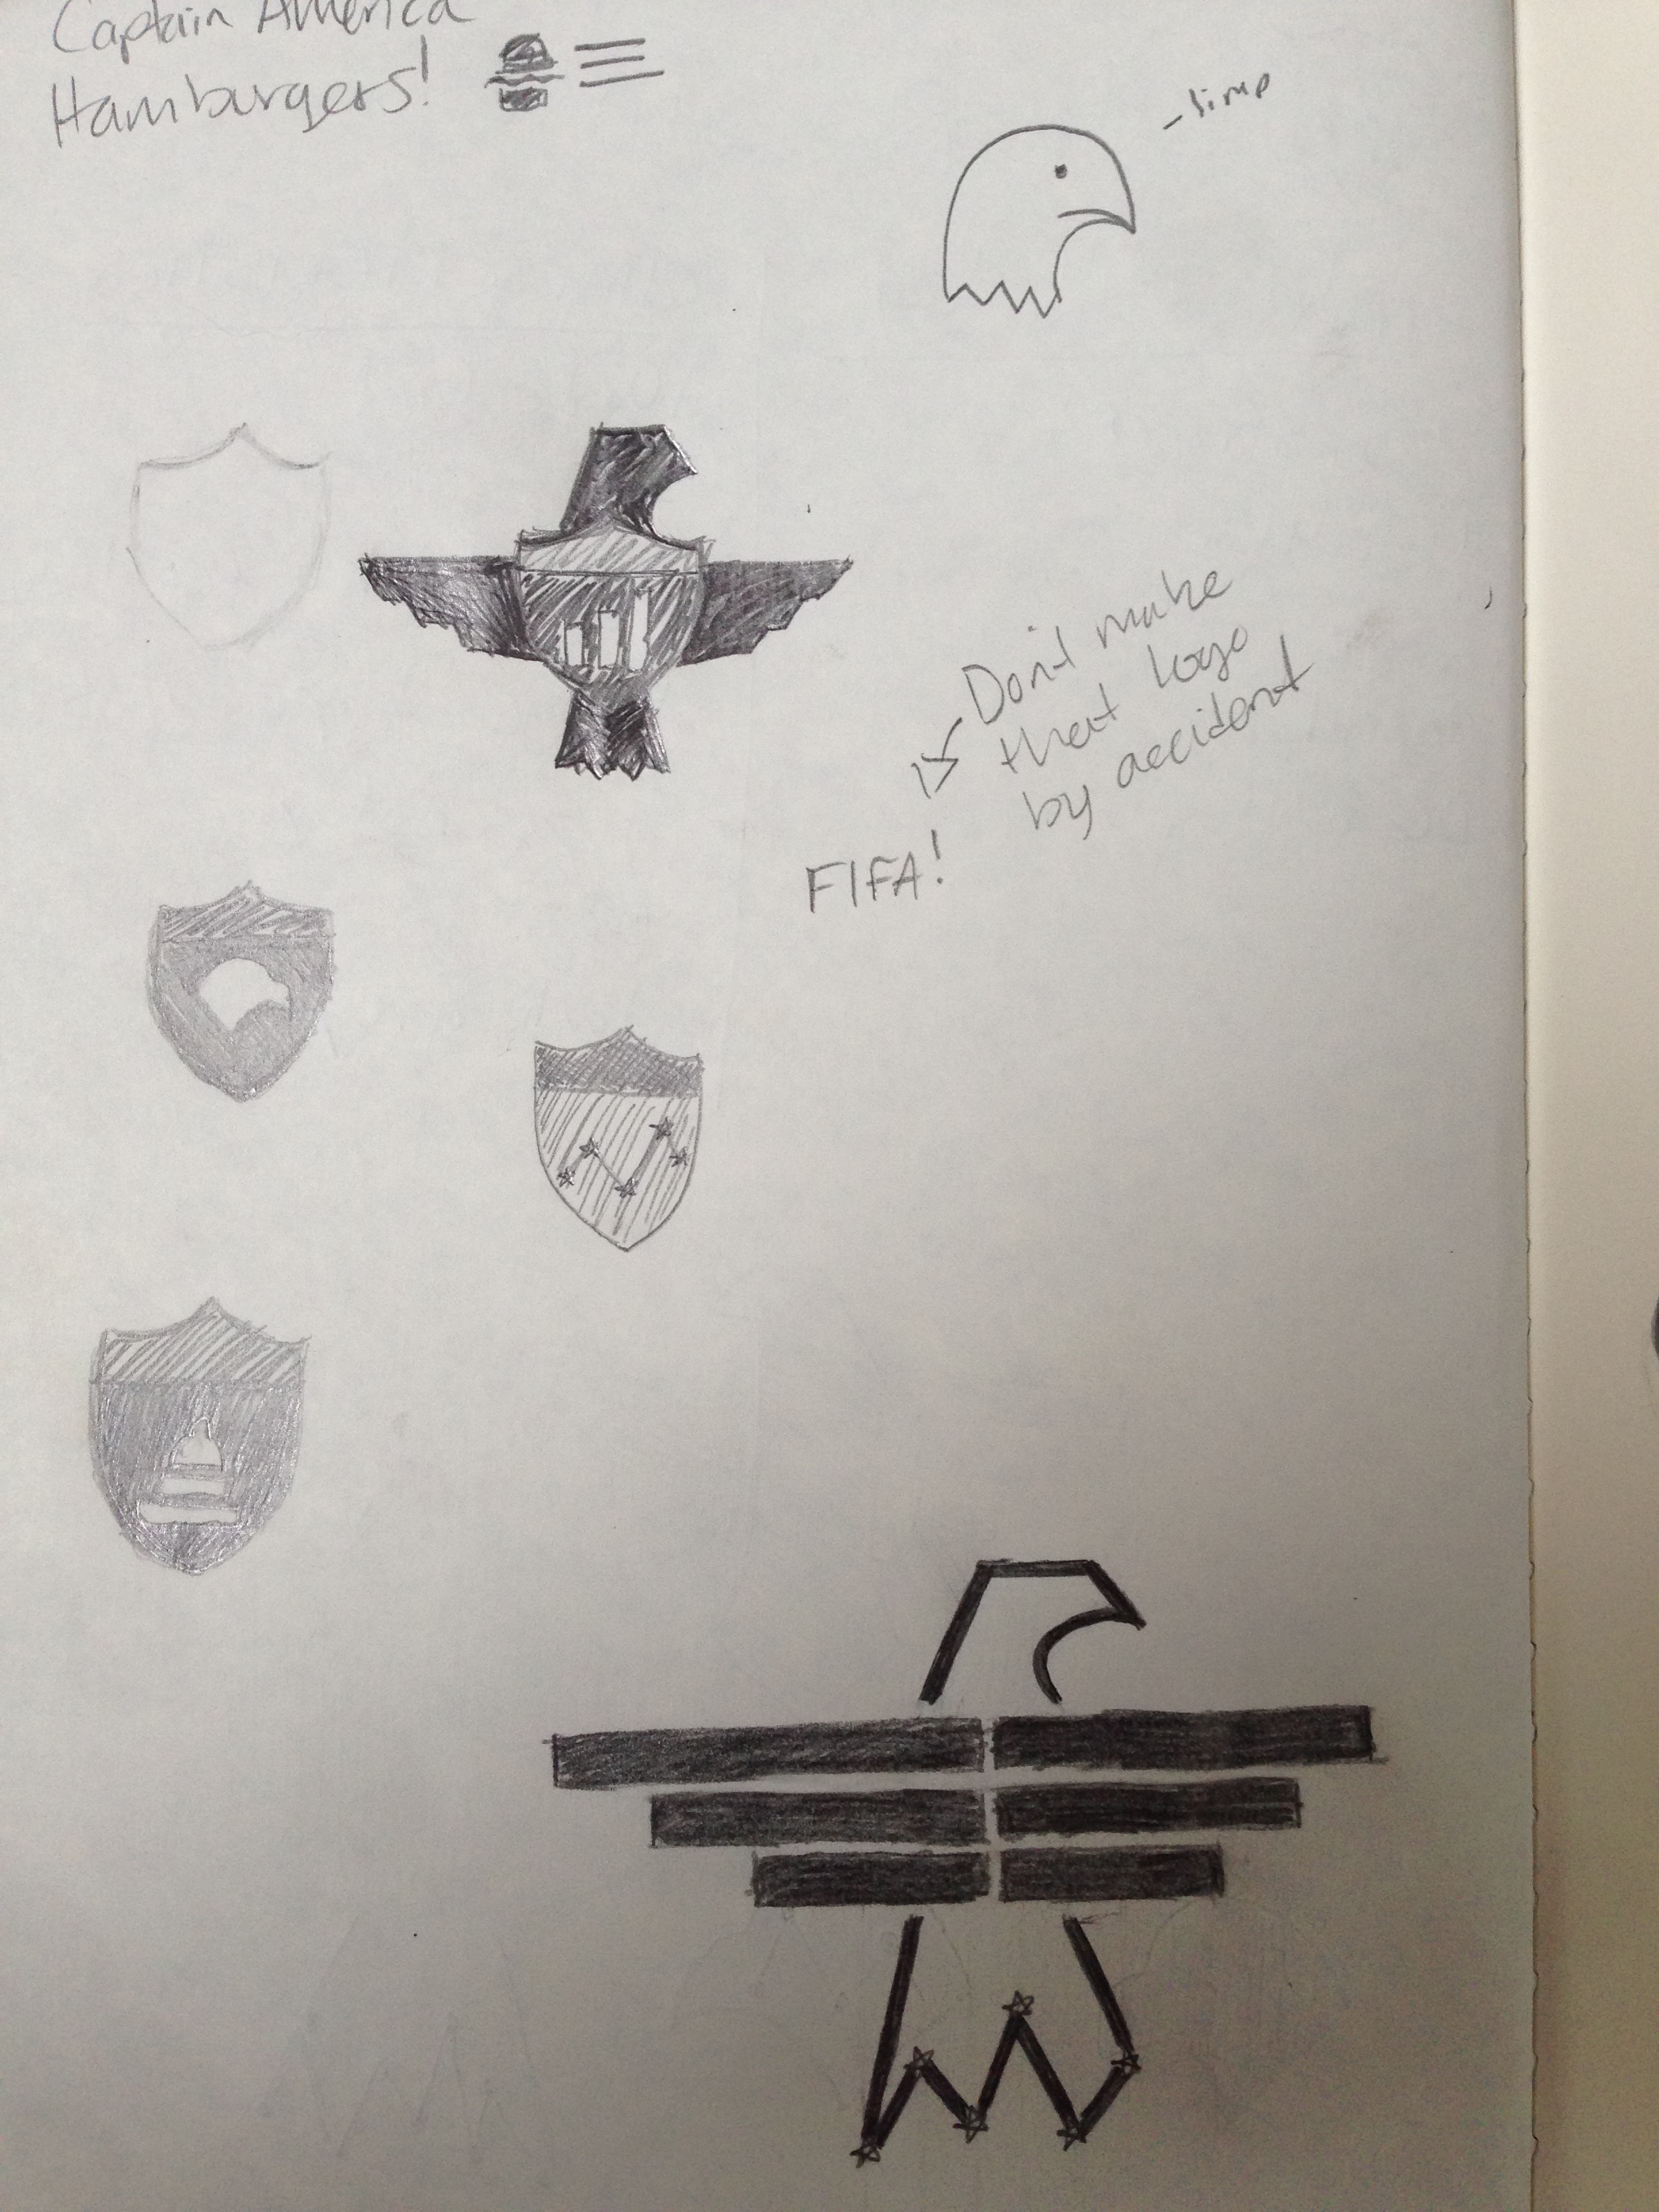 Captain America
Hamburgers!
Don't make
that logo
by accident
FIFA!